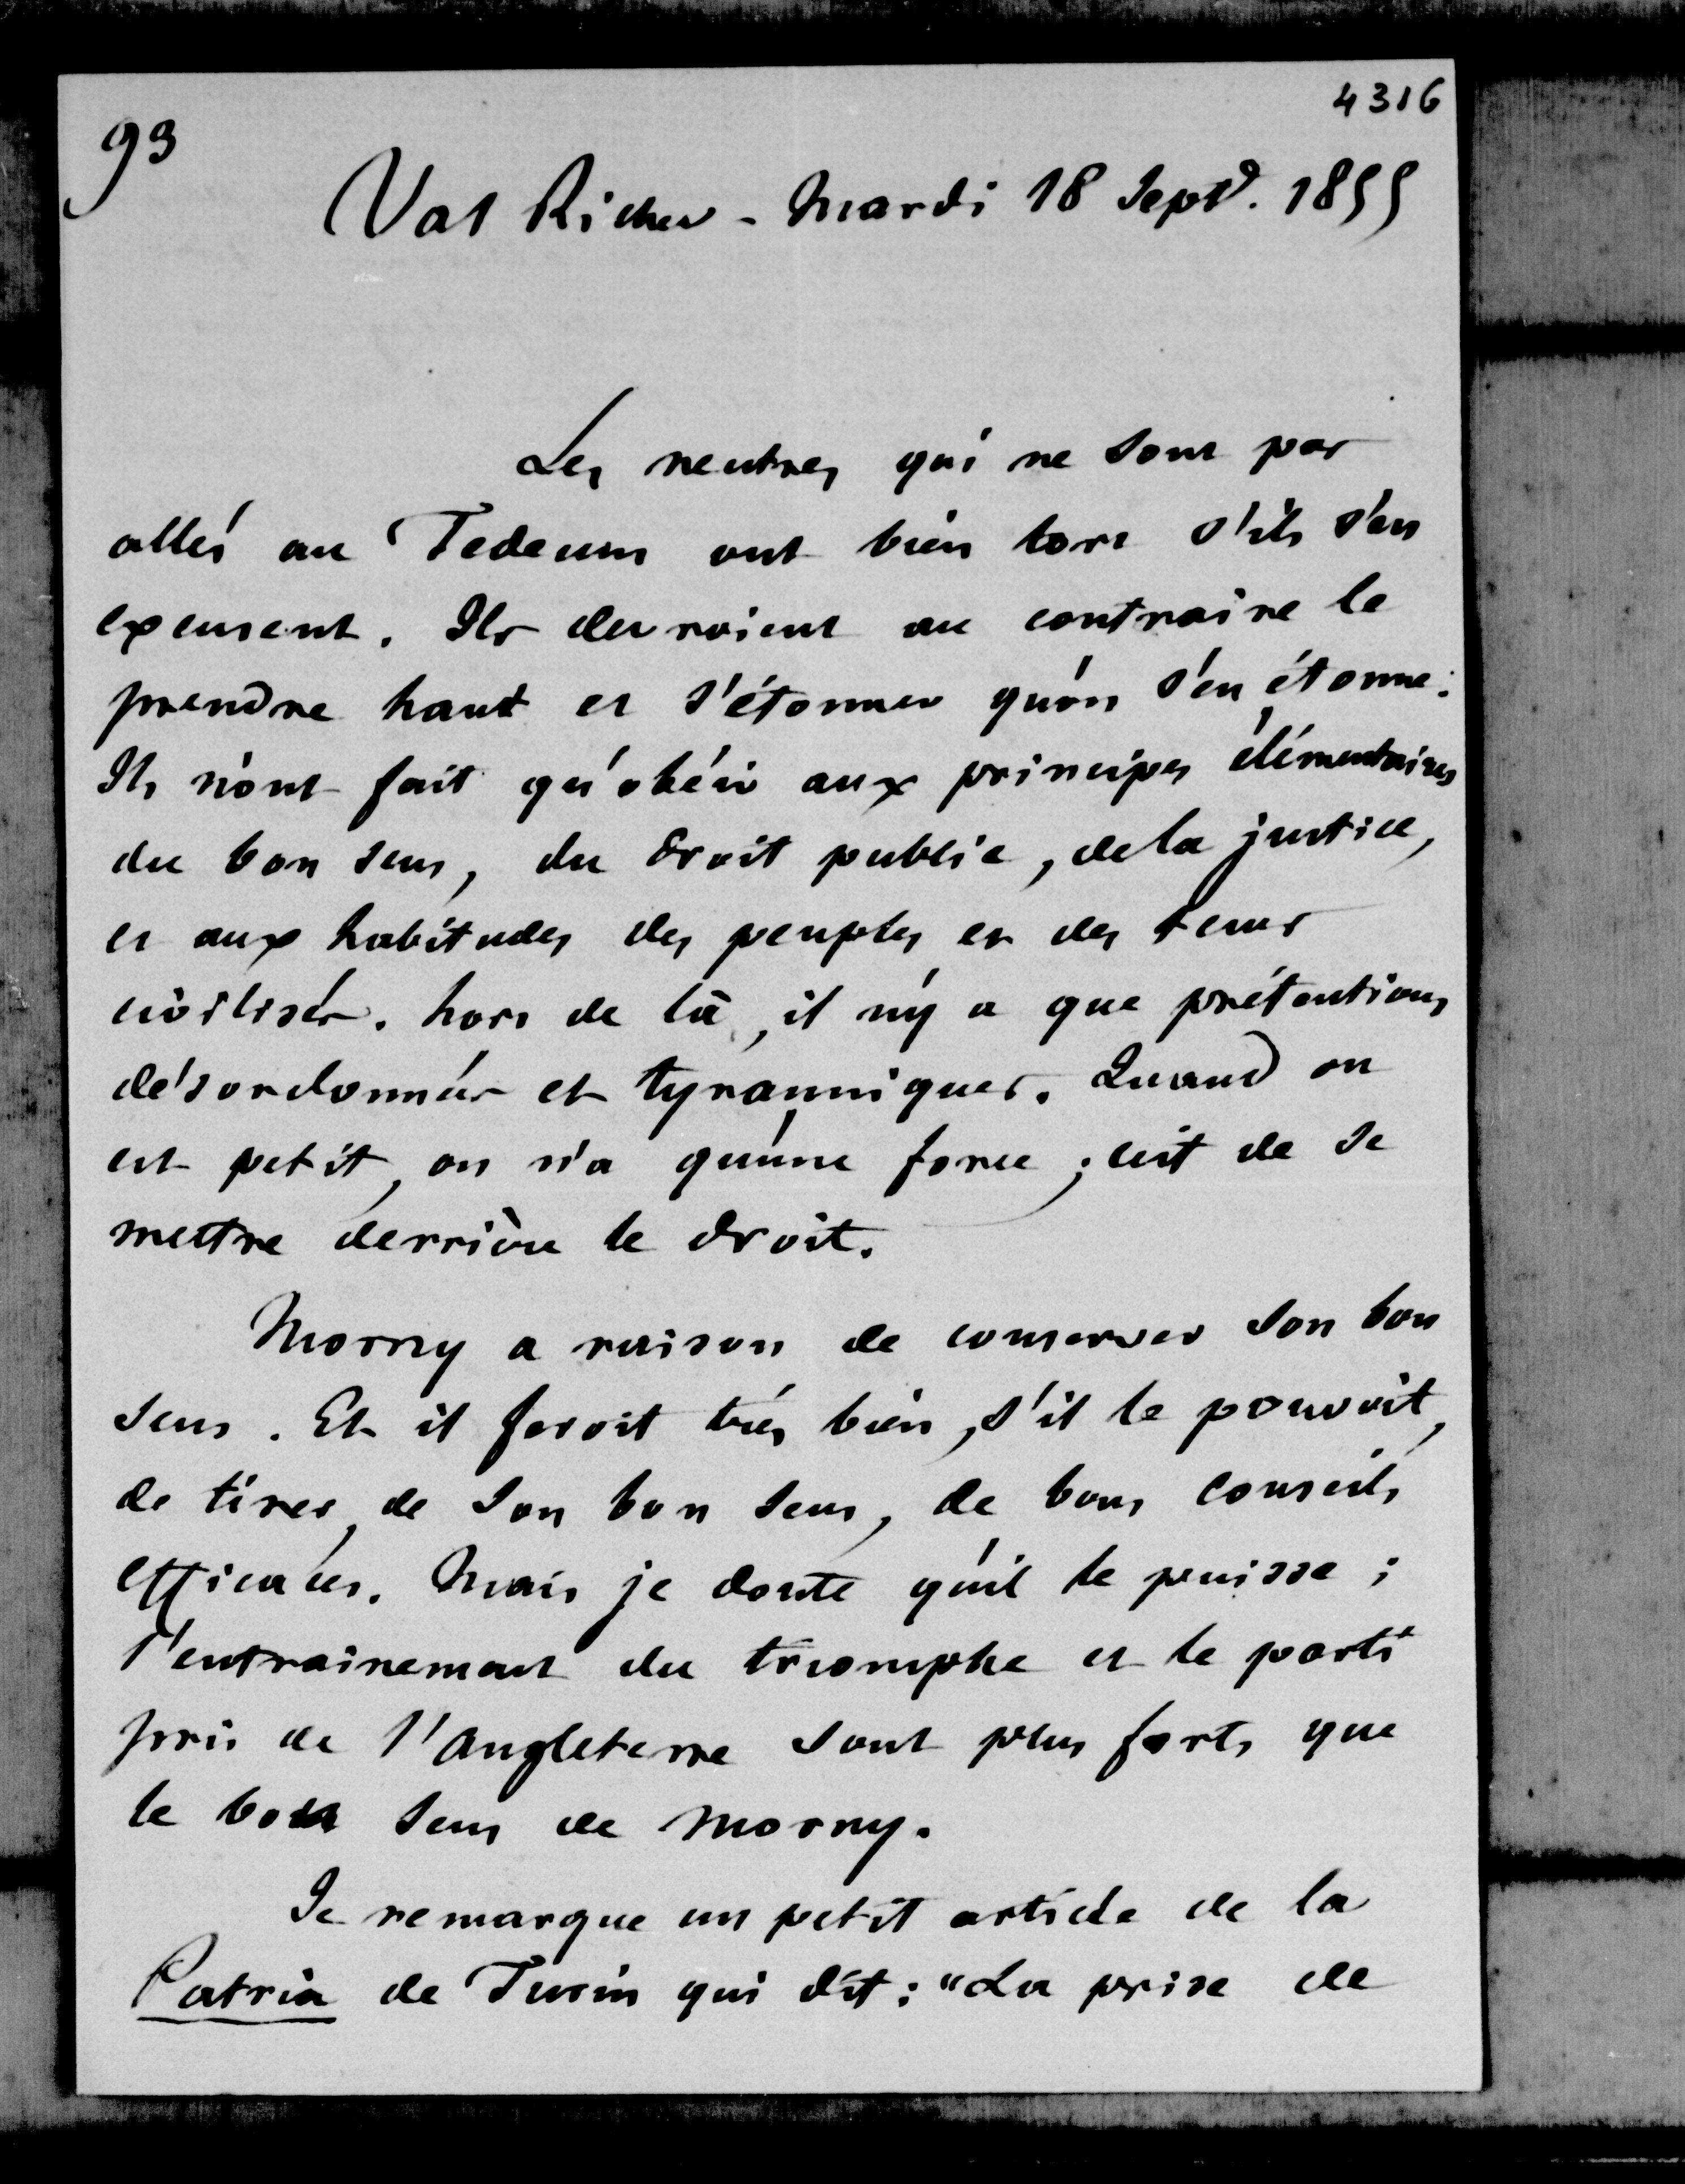 4316
93
Val Richer - Mardi 18 Sept. 1855
Les neutres qui ne sont pas
allés au Tedeum ont bien tort s'ils s'en
excusent. Ils devroient au contraire le
prendre haut et s'étonner qu'on s'en étonne.
Ils n'ont fait qu'obéir aux principes élémentaires
du bon sens, du droit public, de la justice,
et aux habitudes des peuples et des tems
civilisés. hors de là, il n'y a que prétentions
désordonnées et tyranniques. Quand on
est petit, on n'a qu'une force ; c'est de se
mettre derrière le droit.
Morny a raison de conserver son bon
sens. Et il feroit très bien, s'il le pouvoit,
de tirer, de son bon sens, de bons conseils
efficaces. Mais je doute qu'il le puisse ;
l'entrainement du triomphe et le parti
pris de l'Angleterre sont plus forts que
le bon sens de Morny.
Je remarque un petit article de la
Patria de Turin qui dit : "La prise de